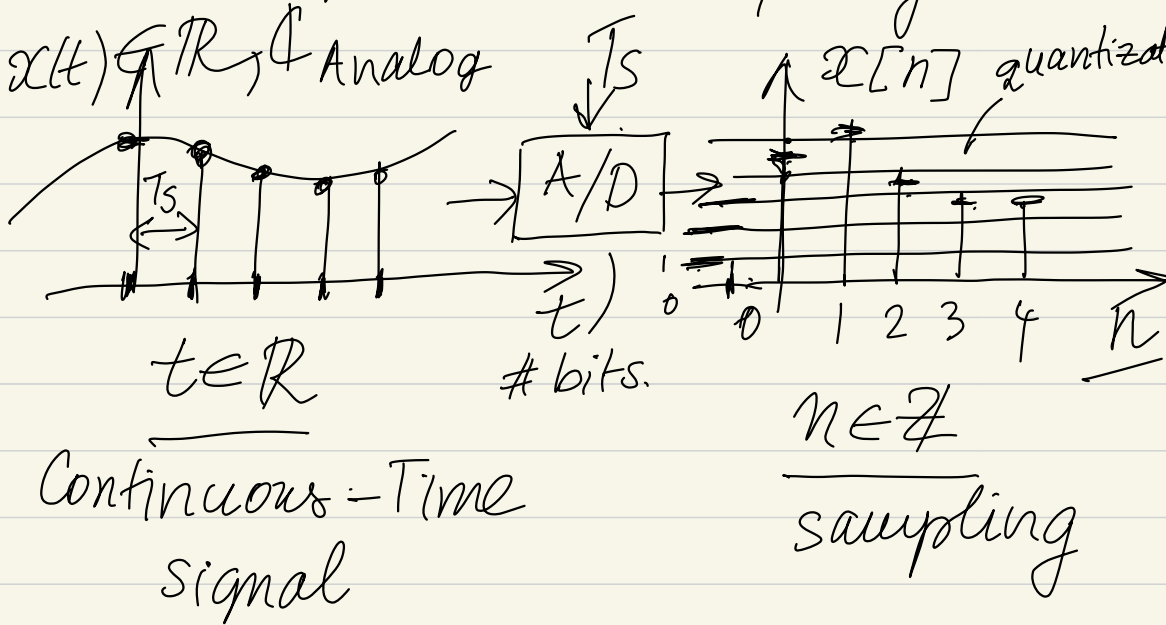 x(t) ∈ ℝ, ℂ Analog
Ts
x[n]
quantizat
Ts
A/D
1
0
0 1 2 3 4 n
t
# bits.
t∈ℝ
n∈ℤ
Continuous-Time
signal
sampling